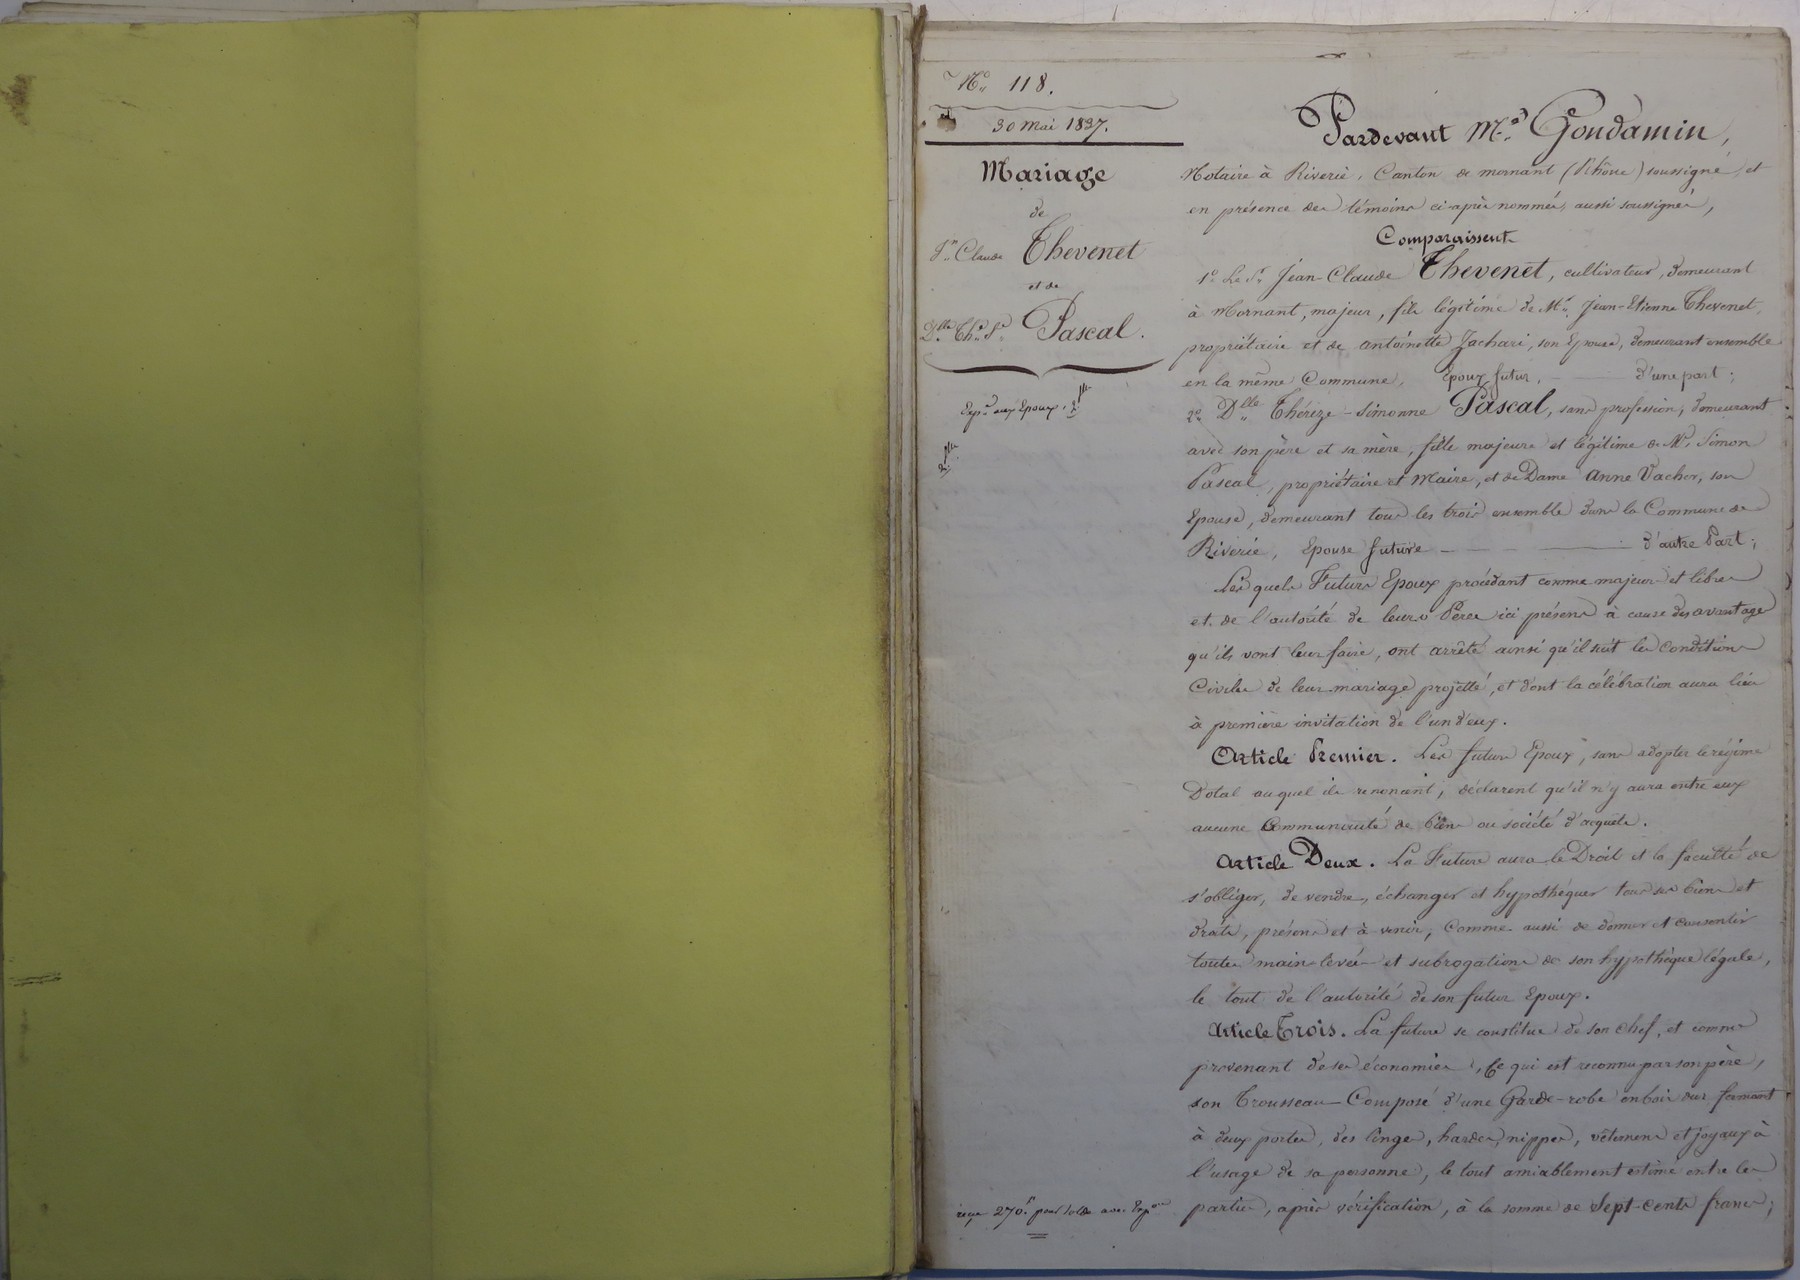 N.° 118.
30 Mai 1837.
Mariage
de
J.n Claude Thevenet
et de
D.lle Th.e S.e Pascal.
Exp.on aux Epoux.
reçu 270.f pour solde avec Exp.on
Pardevant M.e Gondamin,
Notaire à Riverie, Canton de mornant (Rhône) soussigné, et
en présence des témoins ci-après nommés, aussi soussignés,
Comparaissent
1.° Le S.r Jean-Claude Thevenet, cultivateur, demeurant
à Mornant, majeur, fils légitime de M.r Jean-Etienne Thevenet,
propriétaire et de antoinette Jacharie, son Epouse, demeurant ensemble
en la même Commune, Epoux futur, — d'une part;
2.° D.lle Thérèze-Simonne Pascal, sans profession, demeurant
avec son père et sa mère, fille majeure et légitime de M.r Simon
Pascal, propriétaire et Maire, et de Dame Anne Vacher, son
Epouse, demeurant tous les trois ensemble dans la Commune de
Riverie, Epouse future — — — d'autre Part;
Lesquels Futurs Epoux procédant comme majeurs et libres
et de l'autorité de leurs Pères ici présens à cause des avantages
qu'ils vont leur faire, ont arrêté ainsi qu'il suit les Conditions
Civiles de leur mariage projetté, et dont la célébration aura lieu
à première invitation de l'un d'eux.
Article Premier. Les futurs Epoux, sans adopter le régime
Dotal auquel ils renoncent, déclarent qu'il n'y aura entre eux
aucune Communauté de biens ou société d'acquêts.
Article Deux. La Future aura le Droit et la faculté de
s'obliger, de vendre, échanger et hypothéquer tous ses biens et
droits, présens et à venir, Comme aussi de donner et consentir
toutes main-levées et subrogations de son hypothèque légale,
le tout de l'autorité de son futur Epoux.
Article Trois. La future se constitue de son Chef, et comme
provenant de ses économies, Ce qui est reconnu par son père,
son Trousseau Composé d'une Garde-robe en bois dur fermant
à deux portes, des linges, hardes, nippes, vêtemens et joyaux à
l'usage de sa personne, le tout amiablement estimé entre les
parties, après vérification, à la somme de Sept-Cents francs;